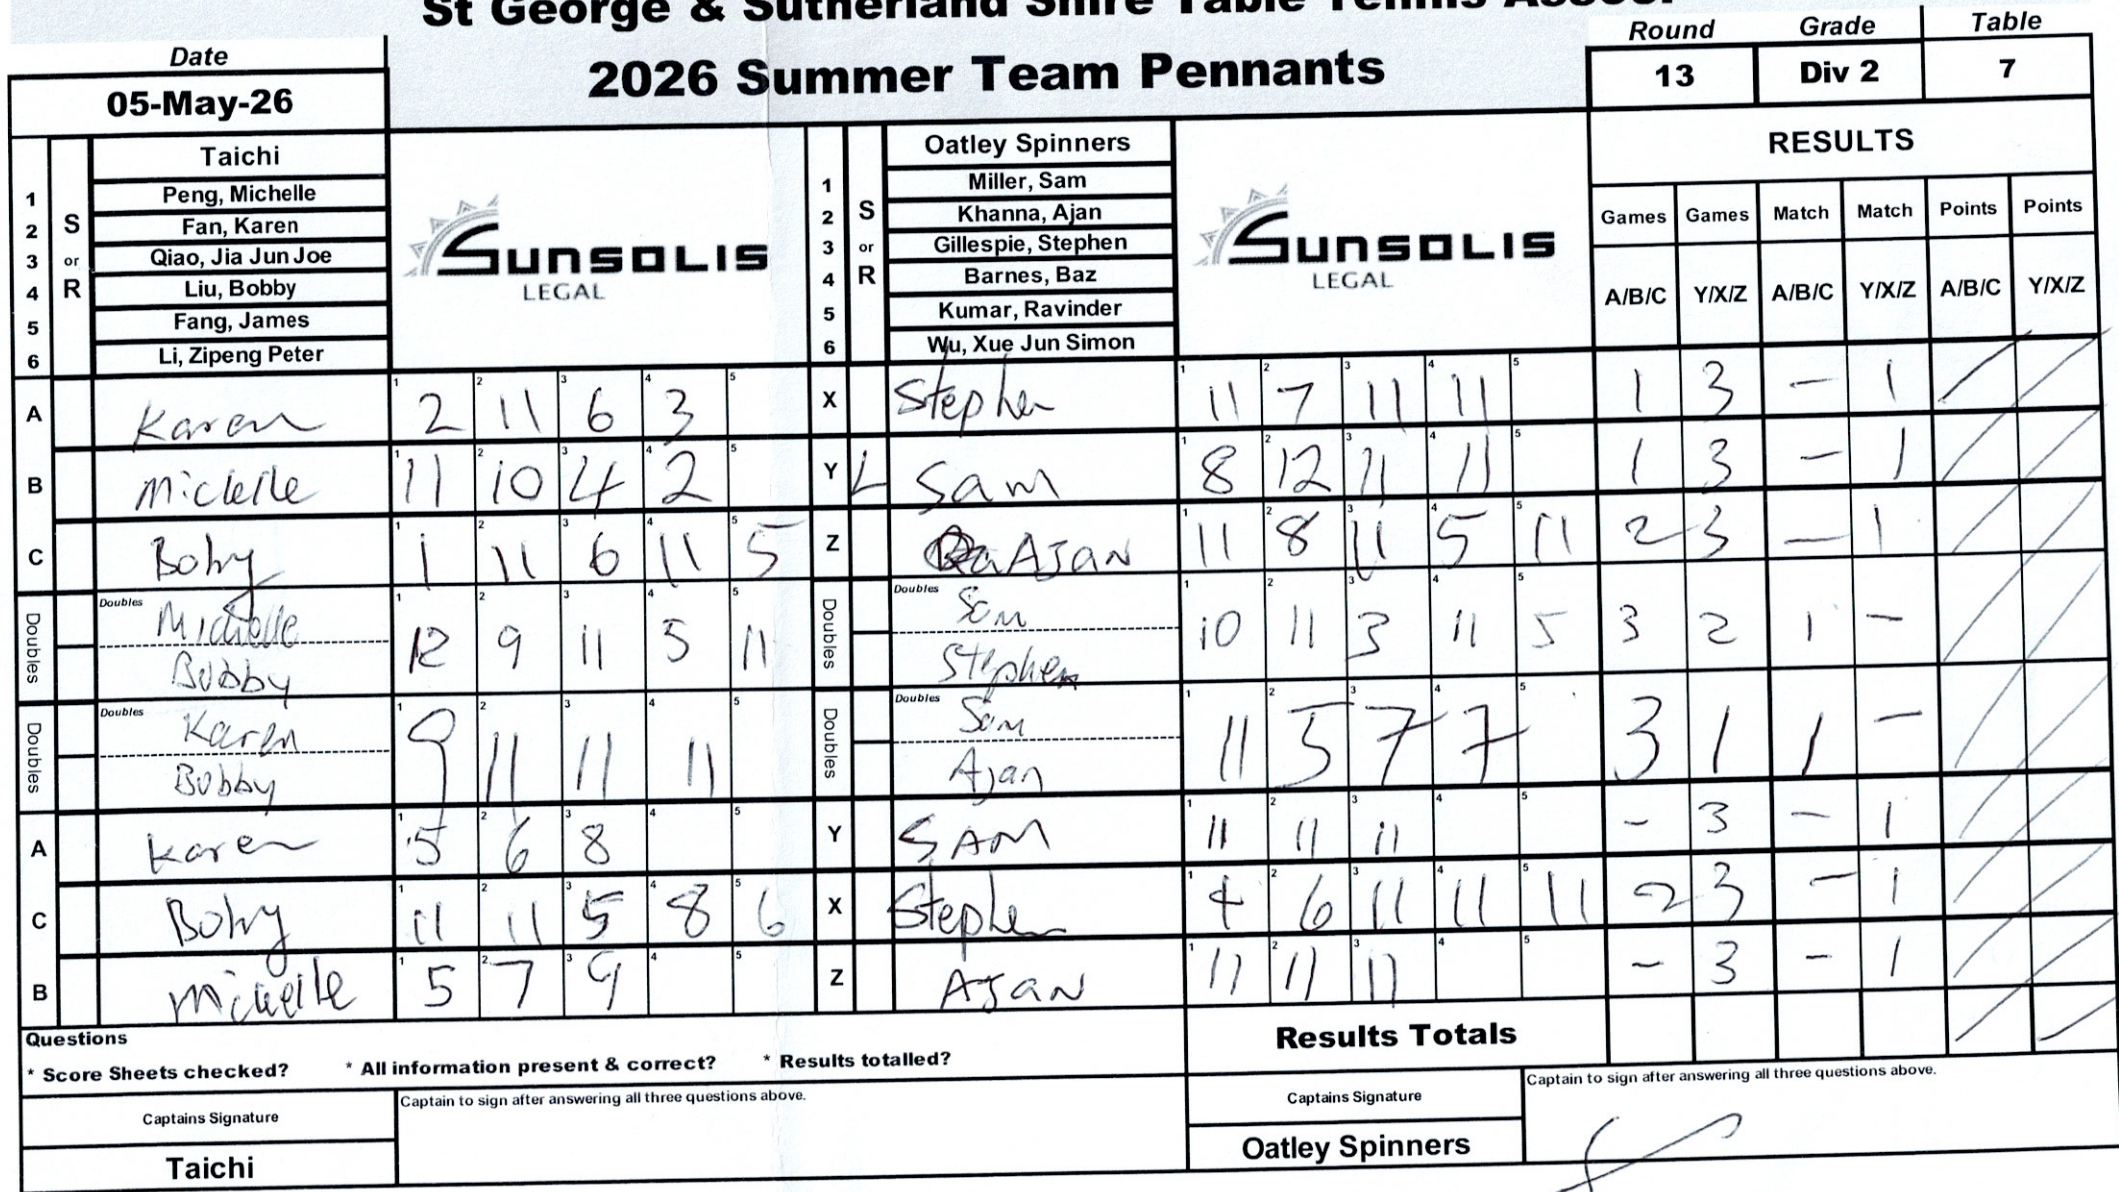 St George & Sutherland Shire Table Tennis Assoc.
2026 Summer Team Pennants
Date
05-May-26
Round Grade Table
13 Div 2 7
1 2 3 4 5 6
S or R
Taichi
Peng, Michelle
Fan, Karen
Qiao, Jia Jun Joe
Liu, Bobby
Fang, James
Li, Zipeng Peter
SUNSOLIS
LEGAL
1 2 3 4 5 6
S or R
Oatley Spinners
Miller, Sam
Khanna, Ajan
Gillespie, Stephen
Barnes, Baz
Kumar, Ravinder
Wu, Xue Jun Simon
SUNSOLIS
LEGAL
RESULTS
Games Games Match Match Points Points
A/B/C Y/X/Z A/B/C Y/X/Z A/B/C Y/X/Z
A Karen 2 11 6 3 X Stephen 11 7 11 11 1 3 - 1
B Michelle 11 10 4 2 Y L Sam 8 12 11 11 1 3 - 1
C Boby 1 11 6 11 5 Z AJAN 11 8 11 5 11 2 3 - 1
Doubles Doubles Michelle Bobby 12 9 11 5 11 Doubles Doubles Sam Stephen 10 11 3 11 5 3 2 1 -
Doubles Doubles Karen Bobby 9 11 11 11 Doubles Doubles Sam Ajan 11 5 7 7 3 1 1 -
A Karen 5 6 8 Y SAM 11 11 11 - 3 - 1
C Boby 11 11 5 8 6 X Stephen 4 6 11 11 11 2 3 - 1
B Michelle 5 7 9 Z AJAN 11 11 11 - 3 - 1
Questions
* Score Sheets checked? * All information present & correct? * Results totalled?
Results Totals
Captains Signature
Captain to sign after answering all three questions above.
Taichi
Captains Signature
Captain to sign after answering all three questions above.
Oatley Spinners